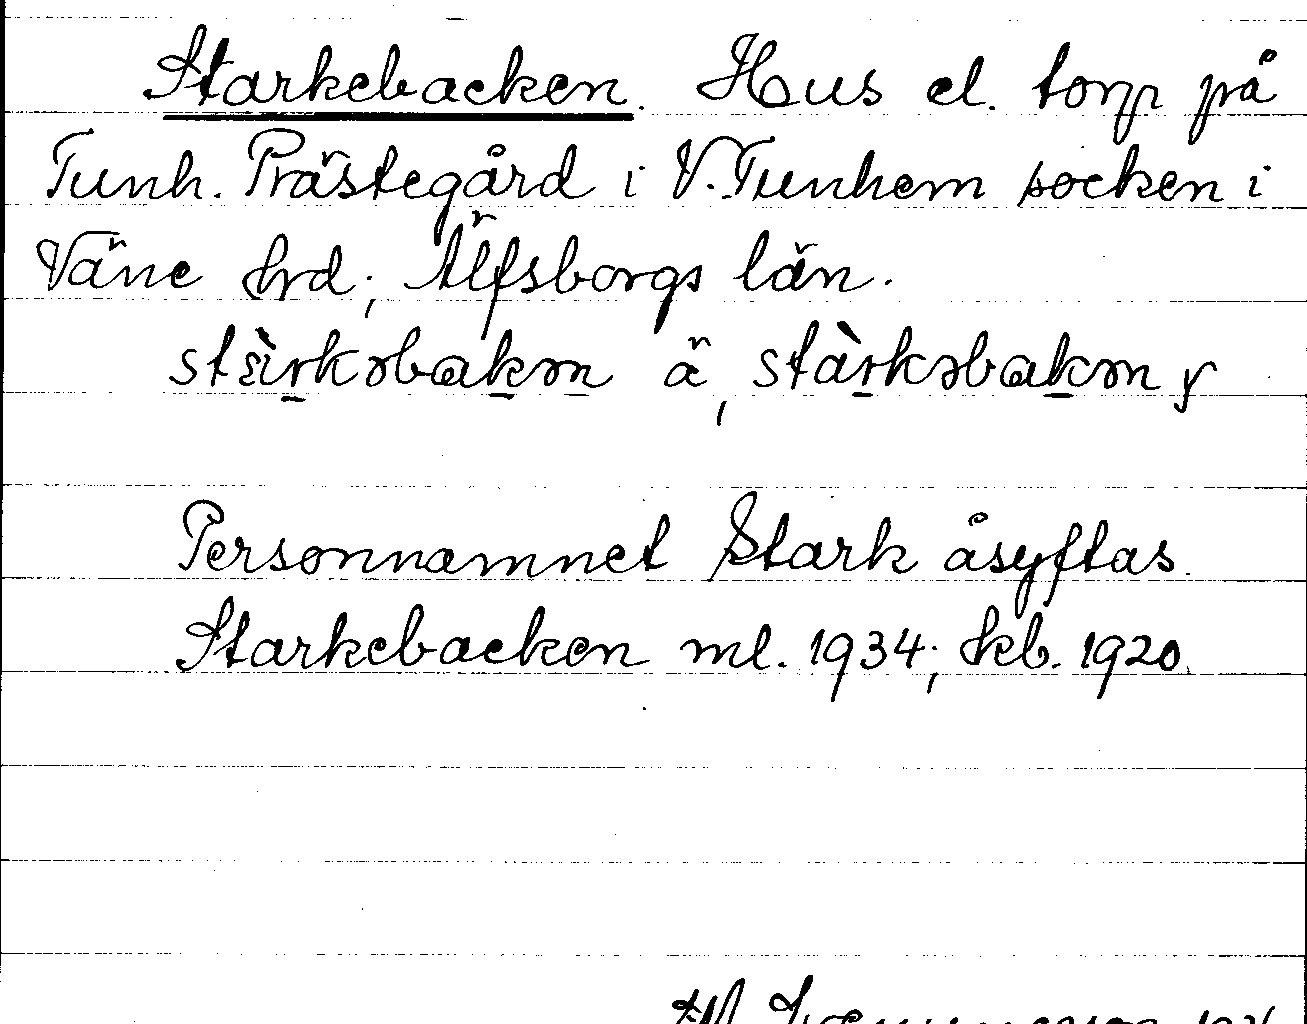 Starkebacken. Hus el. torp på
Tunh. Prästegård i V. Tunhem socken i
Väne hrd; Älfsborgs län.
stàrkəbakən ä, stàrkəbakən y
Personnamnet Stark åsyftas.
Starkebacken ml. 1934; kb. 1920.